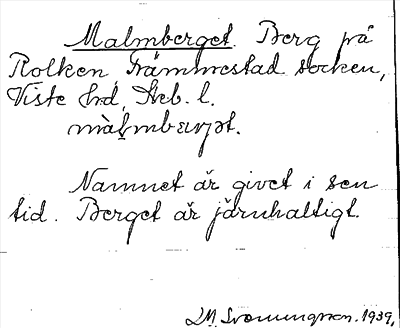 Malmberget. Berg på
Rolken Främmestad socken,
Viste hrd, Skb. l.
Namnet är givet i sen
tid. Berget är järnhaltigt.
1939,